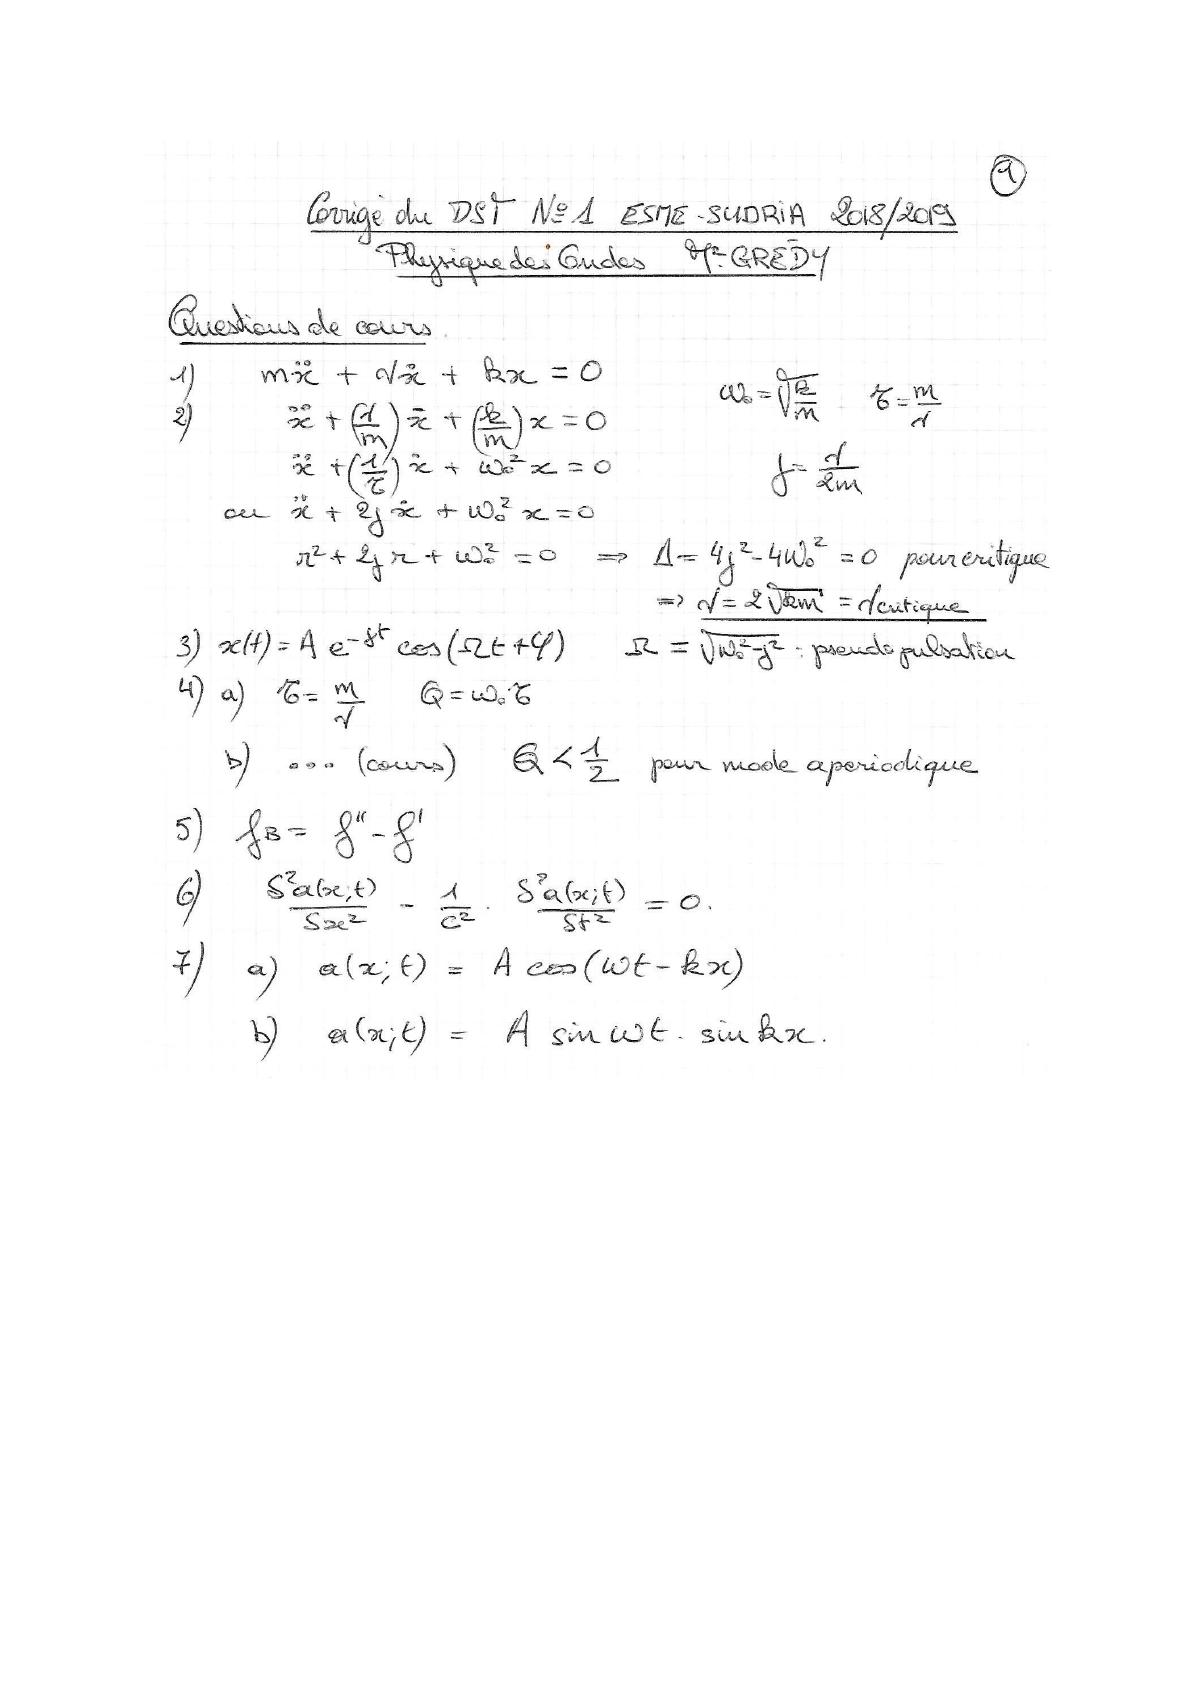 1
Corrigé du DST N°1 ESME-SUDRIA 2018/2019
Physique des Ondes Mr GREDY
Questions de cours.
1) mẍ + √ẋ + kx = 0
ω₀ = √(k/m) τ = m/√
2) ẍ + (√/m)ẋ + (k/m)x = 0
ẍ + (1/τ)ẋ + ω₀²x = 0
f = √/2m
ou ẍ + 2fẋ + ω₀²x = 0
r² + 2fr + ω₀² = 0 ⇒ Δ = 4f² - 4ω₀² = 0 pour critique
⇒ √ = 2√(km) = √critique
3) x(t) = A e^(-ft) cos(Ωt + φ) Ω = √(ω₀² - f²) : pseudo pulsation
4) a) τ = m/√ Q = ω₀.τ
b) ... (cours) Q < 1/2 pour mode aperiodique
5) fB = f'' - f'
6) δ²a(x;t)/δx² - 1/c² . δ²a(x;t)/δt² = 0.
7) a) a(x;t) = A cos(ωt - kx)
b) a(x;t) = A sin ωt . sin kx.